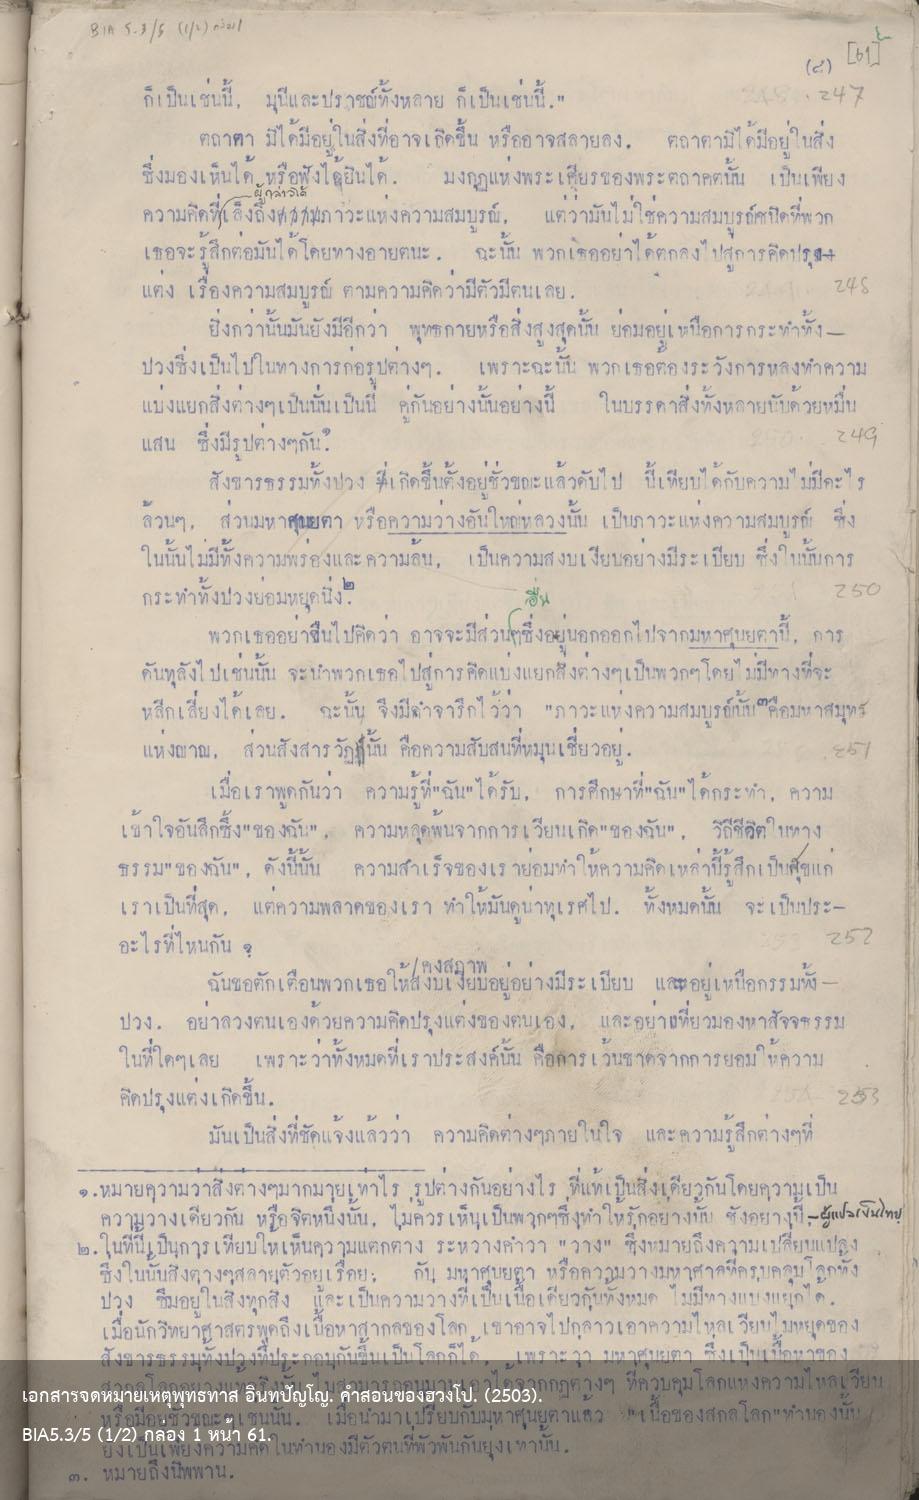 BIA 5.3/5 (1/2) กล่อง 1
[61]
(๘)
247
ก็เป็นเช่นนี้, มุนีและปราชญ์ทั้งหลาย ก็เป็นเช่นนี้."
ตถาตา มิได้มีอยู่ในสิ่งที่อาจเกิดขึ้น หรืออาจสลายลง. ตถาตามิได้มีอยู่ในสิ่ง
ซึ่งมองเห็นได้ หรือฟังได้ยินได้. มงกุฎแห่งพระเศียรของพระตถาคตนั้น เป็นเพียง
ความคิดที่เล็งถึงภาวะแห่งความสมบูรณ์, แต่ว่ามันไม่ใช่ความสมบูรณ์ชนิดที่พวก
เธอจะรู้สึกต่อมันได้โดยทางอายตนะ. ฉะนั้น พวกเธออย่าได้ตกลงไปสู่การคิดปรุง
แต่ง เรื่องความสมบูรณ์ ตามความคิดว่ามีตัวมีตนเลย.
248
ยิ่งกว่านั้นมันยังมีอีกว่า พุทธกายหรือสิ่งสูงสุดนั้น ย่อมอยู่เหนือการกระทำทั้ง-
ปวงซึ่งเป็นไปในทางการก่อรูปต่างๆ. เพราะฉะนั้น พวกเธอต้องระวังการหลงทำความ
แบ่งแยกสิ่งต่างๆเป็นนั่นเป็นนี่ คู่กันอย่างนั้นอย่างนี้ ในบรรดาสิ่งทั้งหลายนับด้วยหมื่น
แสน ซึ่งมีรูปต่างๆกัน.๑
249
สังขารธรรมทั้งปวง ที่เกิดขึ้นตั้งอยู่ชั่วขณะแล้วดับไป นี้เทียบได้กับความไม่มีอะไร
ล้วนๆ, ส่วนมหาศุนยตา หรือความว่างอันใหญ่หลวงนั้น เป็นภาวะแห่งความสมบูรณ์ ซึ่ง
ในนั้นไม่มีทั้งความพร่องและความล้น, เป็นความสงบเงียบอย่างมีระเบียบ ซึ่งในนั้นการ
กระทำทั้งปวงย่อมหยุดนิ่ง.๒
250
อื่น
พวกเธออย่าขืนไปคิดว่า อาจจะมีส่วนๆซึ่งอยู่นอกออกไปจากมหาศุนยตานี้, การ
ดันทุลังไปเช่นนั้น จะนำพวกเธอไปสู่การคิดแบ่งแยกสิ่งต่างๆเป็นพวกๆโดยไม่มีทางที่จะ
หลีกเลี่ยงได้เลย. ฉะนั้น จึงมีคำจารึกไว้ว่า "ภาวะแห่งความสมบูรณ์นั้น๓คือมหาสมุทร
แห่งญาณ, ส่วนสังสารวัฏฏ์นั้น คือความสับสนที่หมุนเชี่ยวอยู่.
251
เมื่อเราพูดกันว่า ความรู้ที่"ฉัน"ได้รับ, การศึกษาที่"ฉัน"ได้กระทำ, ความ
เข้าใจอันลึกซึ้ง"ของฉัน", ความหลุดพ้นจากการเวียนเกิด"ของฉัน", วิถีชีวิตในทาง
ธรรม"ของฉัน", ดังนี้นั้น ความสำเร็จของเราย่อมทำให้ความคิดเหล่านี้รู้สึกเป็นสุขแก่
เราเป็นที่สุด, แต่ความพลาดของเรา ทำให้มันดูน่าทุเรศไป. ทั้งหมดนั้น จะเป็นประ-
อะไรที่ไหนกัน ?
252
คงสภาพ
ฉันขอตักเตือนพวกเธอให้สงบเงียบอยู่อย่างมีระเบียบ และอยู่เหนือกรรมทั้ง-
ปวง. อย่าลวงตนเองด้วยความคิดปรุงแต่งของตนเอง, และอย่าเที่ยวมองหาสัจจธรรม
ในที่ใดๆเลย เพราะว่าทั้งหมดที่เราประสงค์นั้น คือการเว้นขาดจากการยอมให้ความ
คิดปรุงแต่งเกิดขึ้น.
253
มันเป็นสิ่งที่ชัดแจ้งแล้วว่า ความคิดต่างๆภายในใจ และความรู้สึกต่างๆที่
๑.หมายความว่าสิ่งต่างๆมากมายเท่าไร รูปต่างกันอย่างไร ที่แท้เป็นสิ่งเดียวกันโดยความเป็น
ความว่างเดียวกัน หรือจิตหนึ่งนั้น, ไม่ควรเห็นเป็นพวกๆซึ่งทำให้รักอย่างนั้น ชังอย่างนี้.-ผู้แปลเป็นไทย.
๒.ในที่นี้เป็นการเทียบให้เห็นความแตกต่าง ระหว่างคำว่า "ว่าง" ซึ่งหมายถึงความเปลี่ยนแปลง
ซึ่งในนั้นสิ่งต่างๆสลายตัวอยู่เรื่อย; กับ มหาศุนยตา หรือความว่างมหาศาลที่ครอบคลุมโลกทั้ง
ปวง ซึมอยู่ในสิ่งทุกสิ่ง และเป็นความว่างที่เป็นเนื้อเดียวกันทั้งหมด ไม่มีทางแบ่งแยกได้.
เมื่อนักวิทยาศาสตรพูดถึงเนื้อหาสากลของโลก เขาอาจไปกล่าวเอาความไหลเวียนไม่หยุดของ
สังขารธรรมทั้งปวงที่ประกอบกันขึ้นเป็นโลกก็ได้, เพราะว่า มหาศุนยตา ซึ่งเป็นเนื้อหาของ
หรือมีอยู่ชั่วขณะๆเช่นนั้น. เมื่อนำมาเปรียบกับมหาศุนยตาแล้ว "เนื้อของสกลโลก"ทำนองนั้น
ยังเป็นเพียงความคิดในทำนองมีตัวตนที่พัวพันกันยุ่งเท่านั้น.
๓. หมายถึงนิพพาน.
เอกสารจดหมายเหตุพุทธทาส อินทปัญโญ. คำสอนของฮวงโป. (2503).
BIA5.3/5 (1/2) กล่อง 1 หน้า 61.